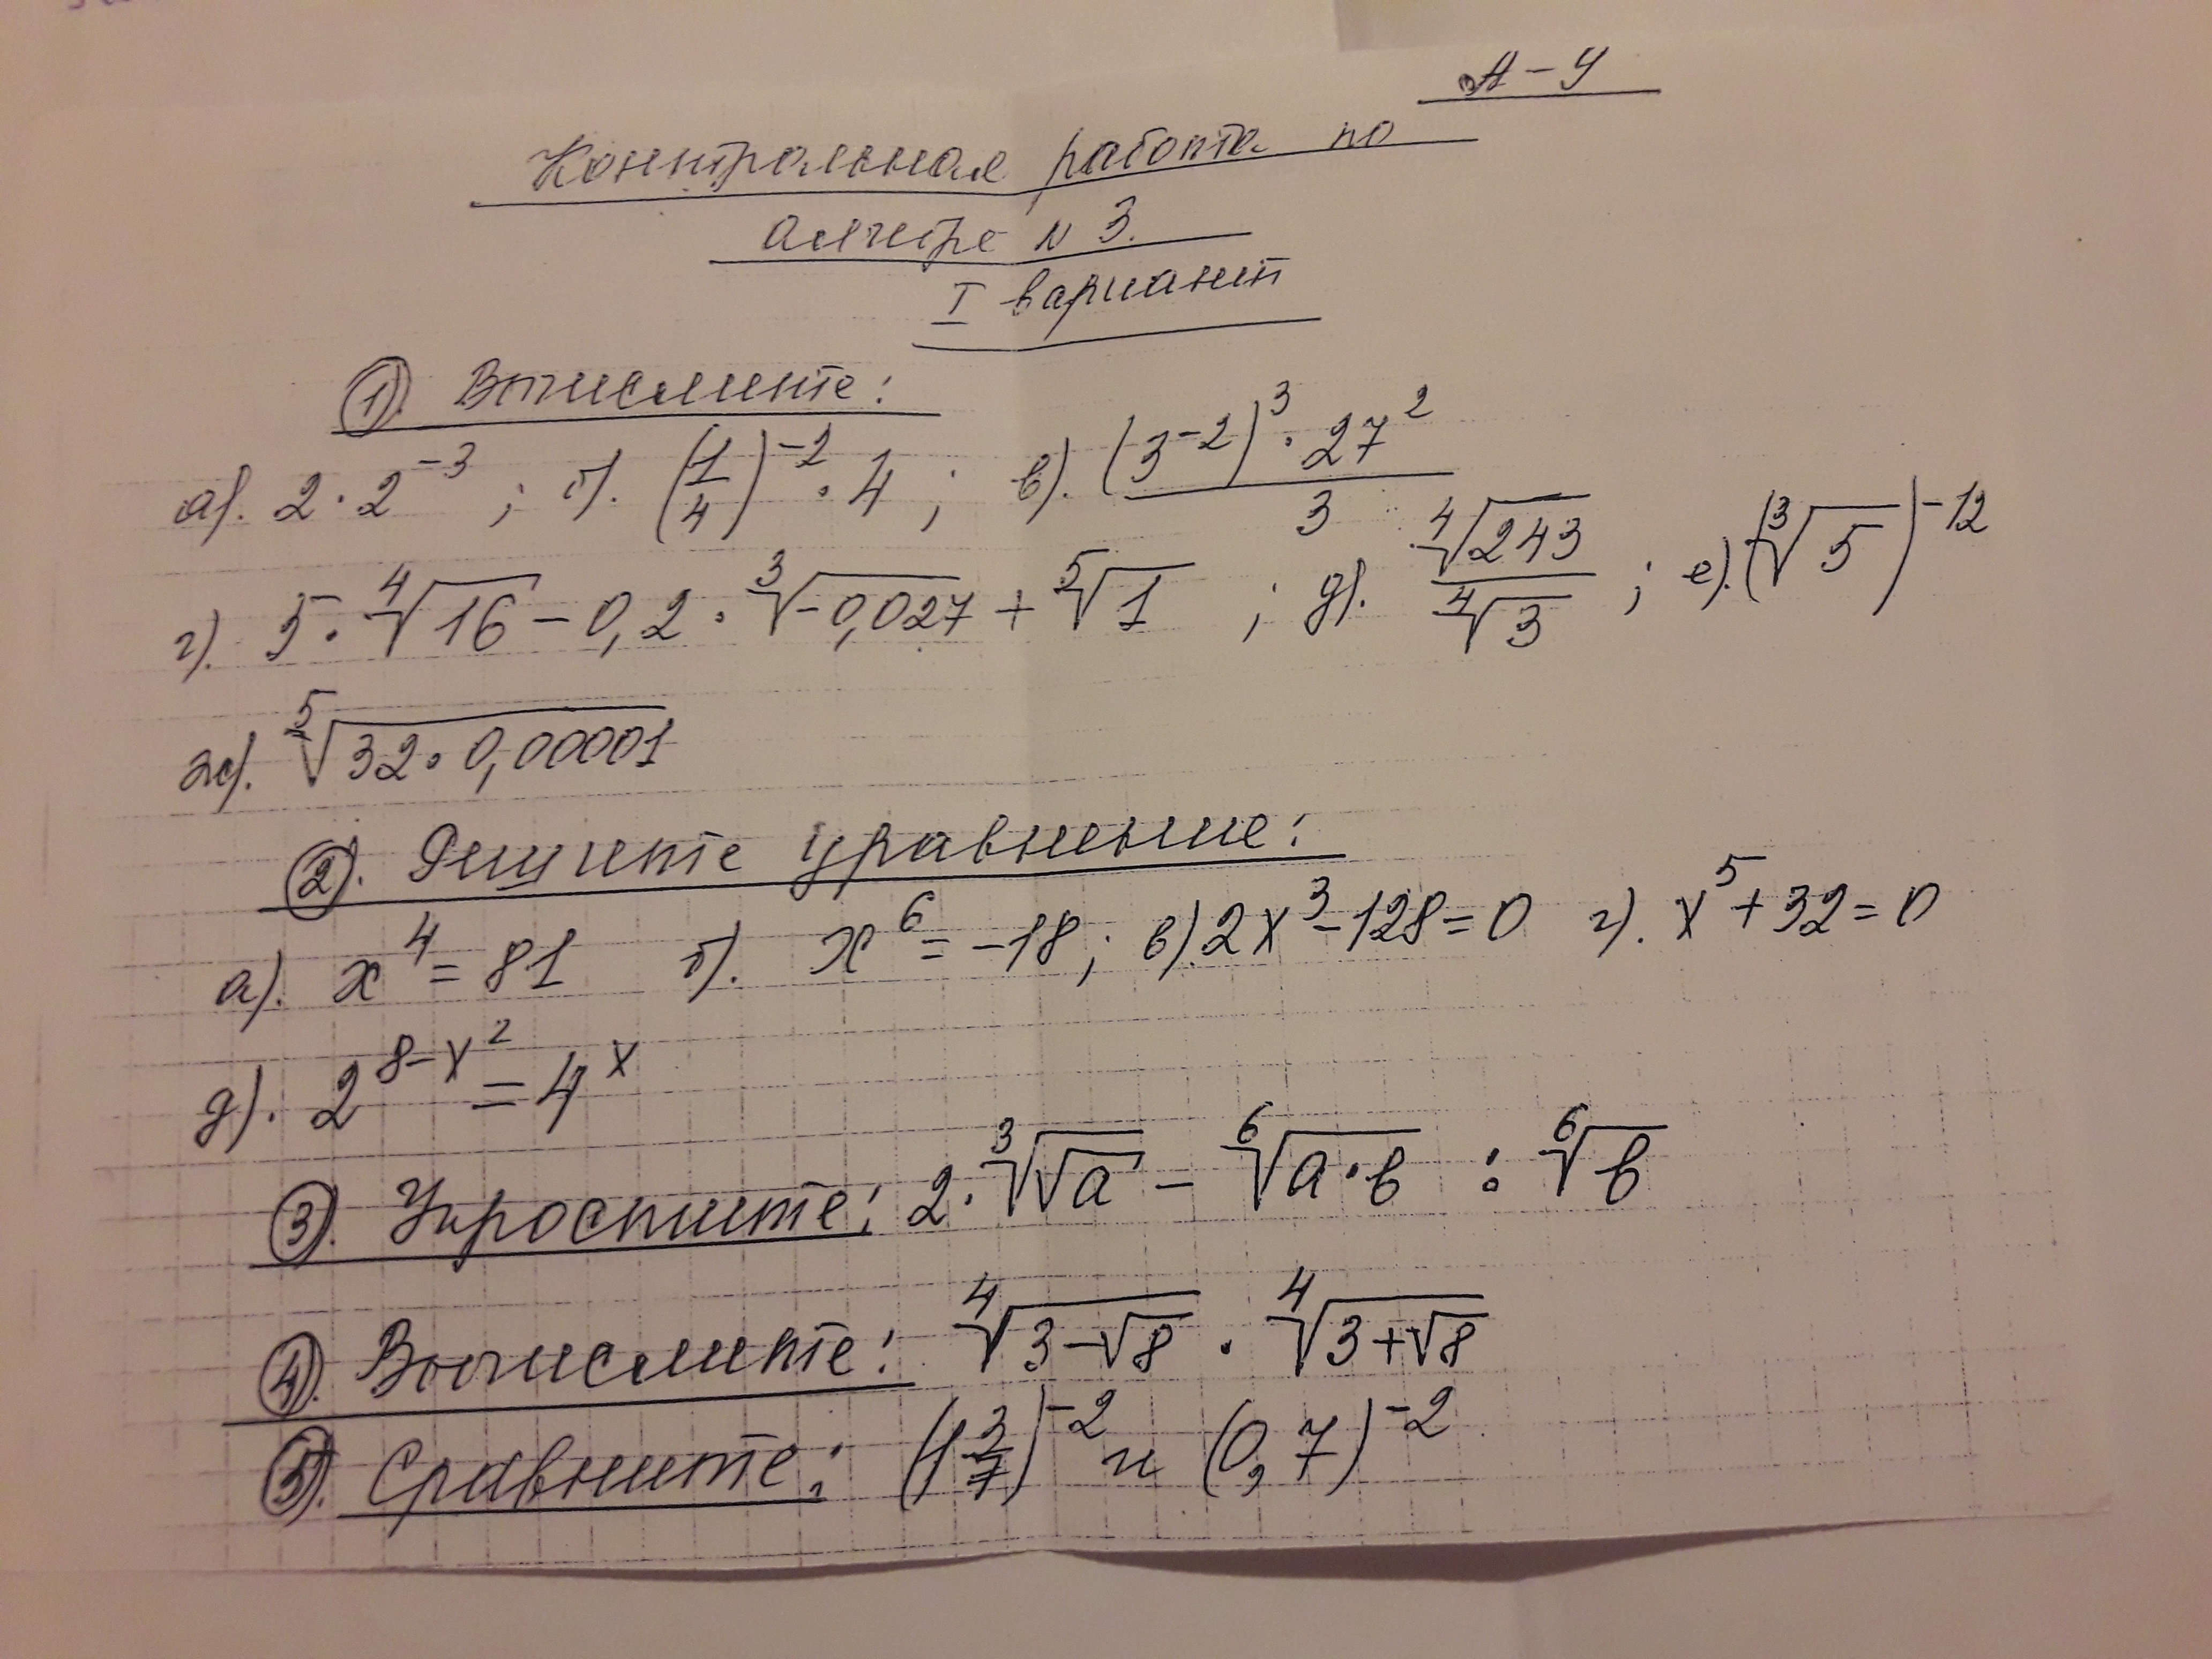 А – 9
Контрольная работа по
алгебре № 3.
I вариант
①. Вычислите:
а). 2 · 2⁻³ ; б). (1/4)⁻² · 4 ; в). ((3⁻²)³ · 27²)/3
г). 5 · ⁴√16 – 0,2 · ³√–0,027 + ⁵√1 ; д). ⁴√243/⁴√3 ; е). (³√5)⁻¹²
ж). ⁵√(32 · 0,00001)
②. Решите уравнение:
а). x⁴ = 81 б). x⁶ = –18 ; в). 2x³ – 128 = 0 г). x⁵ + 32 = 0
д). 2^(8–x²) = 4^x
③. Упростите: 2 · ³√(√a) – ⁶√(a · b) : ⁶√b
④. Вычислите: ⁴√(3–√8) · ⁴√(3+√8)
⑤. Сравните: (1 3/7)⁻² и (0,7)⁻²